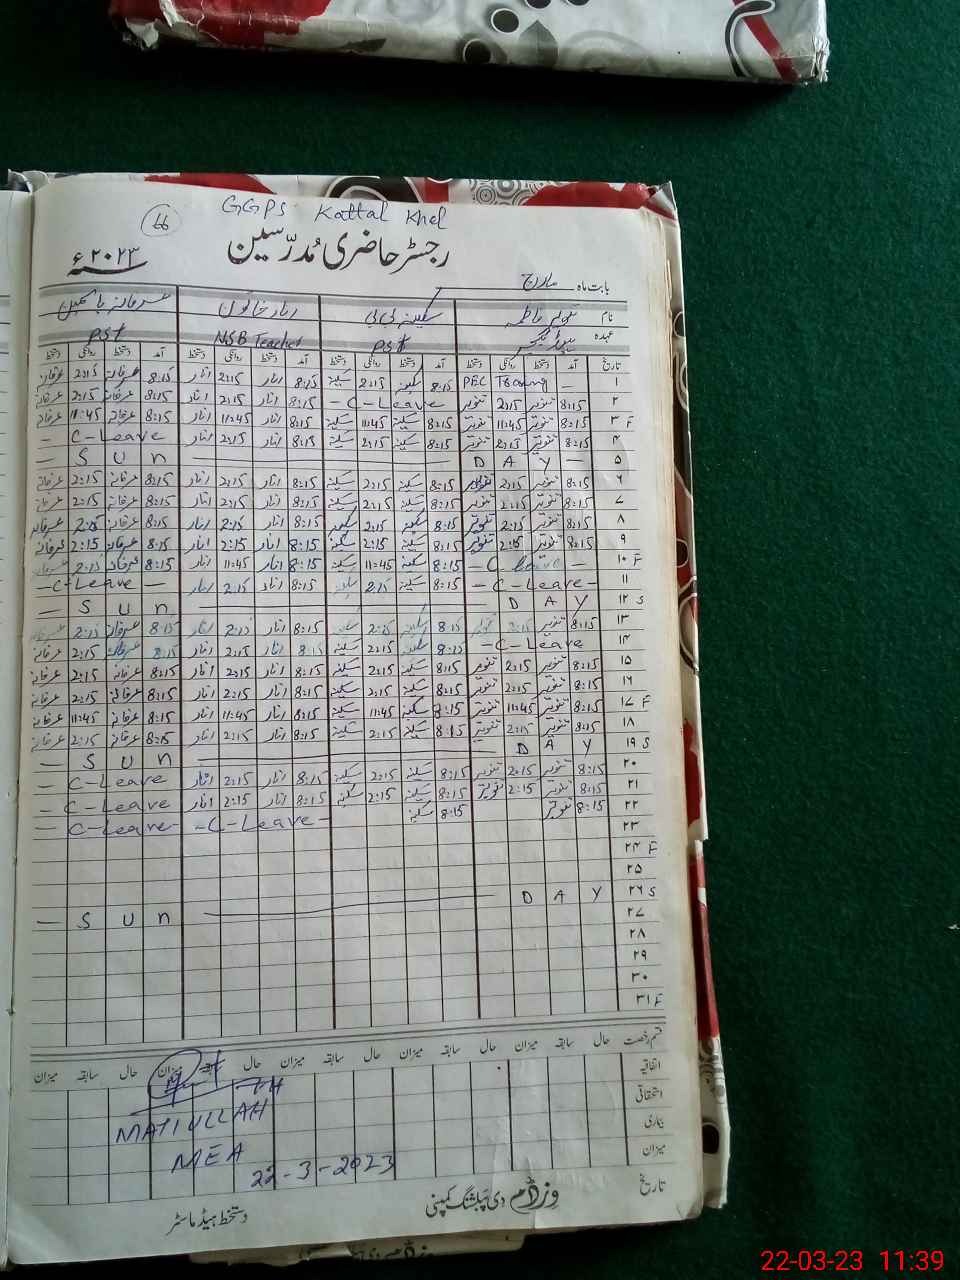 GGPS Kottal Khel
66
رجسٹر حاضری مُدرّسین
۲۰۲۳ء
بابت ماہ مارچ
نام تنویر فاطمہ سکینہ بی بی انار خاتون عرفانہ یاسمین
عہدہ PST NSB Teacher PST
تاریخ آمد دستخط روانگی دستخط آمد دستخط روانگی دستخط آمد دستخط روانگی دستخط آمد دستخط روانگی دستخط
۱ — PEC Training 8:15 سکینہ 2:15 سکینہ 8:15 انار 2:15 انار 8:15 عرفانہ 2:15 عرفانہ
۲ 8:15 تنویر 2:15 تنویر -C-Leave 8:15 انار 2:15 انار 8:15 عرفانہ 2:15 عرفانہ
۳ F 8:15 تنویر 11:45 تنویر 8:15 سکینہ 11:45 سکینہ 8:15 انار 11:45 انار 8:15 عرفانہ 11:45 عرفانہ
۴ 8:15 تنویر 2:15 تنویر 8:15 سکینہ 2:15 سکینہ 8:15 انار 2:15 انار - C-Leave
۵ — S U n — D A Y —
۶ 8:15 تنویر 2:15 تنویر 8:15 سکینہ 2:15 سکینہ 8:15 انار 2:15 انار 8:15 عرفانہ 2:15 عرفانہ
۷ 8:15 تنویر 2:15 تنویر 8:15 سکینہ 2:15 سکینہ 8:15 انار 2:15 انار 8:15 عرفانہ 2:15 عرفانہ
۸ 8:15 تنویر 2:15 تنویر 8:15 سکینہ 2:15 سکینہ 8:15 انار 2:15 انار 8:15 عرفانہ 2:15 عرفانہ
۹ 8:15 تنویر 2:15 تنویر 8:15 سکینہ 2:15 سکینہ 8:15 انار 2:15 انار 8:15 عرفانہ 2:15 عرفانہ
۱۰ F -C-Leave- 8:15 سکینہ 11:45 سکینہ 8:15 انار 11:45 انار 8:15 عرفانہ 2:15 عرفانہ
۱۱ -C-Leave- 8:15 سکینہ 2:15 سکینہ 8:15 انار 2:15 انار -C-Leave —
۱۲ S — S U n — D A Y
۱۳ 8:15 تنویر 2:15 تنویر 8:15 سکینہ 2:15 سکینہ 8:15 انار 2:15 انار 8:15 عرفانہ 2:15 عرفانہ
۱۴ -C-Leave 8:15 سکینہ 2:15 سکینہ 8:15 انار 2:15 انار 8:15 عرفانہ 2:15 عرفانہ
۱۵ 8:15 تنویر 2:15 تنویر 8:15 سکینہ 2:15 سکینہ 8:15 انار 2:15 انار 8:15 عرفانہ 2:15 عرفانہ
۱۶ 8:15 تنویر 2:15 تنویر 8:15 سکینہ 2:15 سکینہ 8:15 انار 2:15 انار 8:15 عرفانہ 2:15 عرفانہ
۱۷ F 8:15 تنویر 11:45 تنویر 8:15 سکینہ 11:45 سکینہ 8:15 انار 11:45 انار 8:15 عرفانہ 11:45 عرفانہ
۱۸ 8:15 تنویر 2:15 تنویر 8:15 سکینہ 2:15 سکینہ 8:15 انار 2:15 انار 8:15 عرفانہ 2:15 عرفانہ
۱۹ S — S U n — D A Y
۲۰ 8:15 تنویر 2:15 تنویر 8:15 سکینہ 2:15 سکینہ 8:15 انار 2:15 انار - C-Leave
۲۱ 8:15 تنویر 2:15 تنویر 8:15 سکینہ 2:15 سکینہ 8:15 انار 2:15 انار - C-Leave
۲۲ 8:15 تنویر 8:15 سکینہ -C-Leave- - C-Leave-
۲۳
۲۴ F
۲۵
۲۶ S — S U n — D A Y
۲۷
۲۸
۲۹
۳۰
۳۱ F
قسم رخصت حال سابقہ میزان حال سابقہ میزان حال سابقہ میزان حال سابقہ میزان
اتفاقیہ
استحقاقی
بیماری
میزان
تاریخ
MATIULLAH
MEA
22-3-2023
وزڈم دی پبلشنگ کمپنی
دستخط ہیڈ ماسٹر
22-03-23 11:39